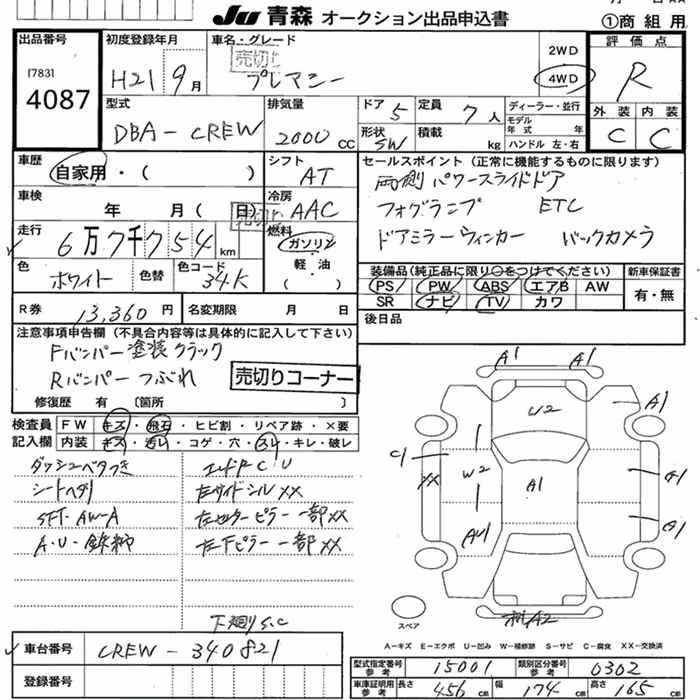 Ju 青森 オークション出品申込書
①商組用
出品番号
17831
4087
初度登録年月
H21 9月
車名・グレード
売切り
プレマシー
2WD
4WD
評価点
R
外装 内装
C C
型式
DBA-CREW
排気量
2000 CC
ドア 5
定員 7人
形状 SW
積載 kg
ディーラー・並行
モデル年式 年式
ハンドル 左・右
車歴
自家用・( )
シフト
AT
車検
年 月( 日)
売切り
冷房
AAC
走行
6万7千754 km
燃料
ガソリン
軽・油
( )
色
ホワイト
色替
色コード
34K
セールスポイント(正常に機能するものに限ります)
両側パワースライドドア
フォグランプ ETC
ドアミラーウィンカー バックカメラ
装備品(純正品に限り○をつけてください)
PS PW ABS エアB AW
SR ナビ TV カワ
新車保証書
有・無
R券
13,360円
名変期限 月 日
後日品
注意事項申告欄(不具合内容等は具体的に記入して下さい)
Fバンパー塗装クラック
Rバンパーつぶれ
売切りコーナー
修復歴 有 〔箇所 〕
検査員記入欄
FW キズ・飛石・ヒビ割・リペア跡・×要
内装 キズ・汚れ・コゲ・穴・スレ・キレ・破レ
ダッシュベタつき
シートヘタリ
SFT・AW-A
A・U・錆
エンドP C U
左サイドシルXX
左センターピラー一部XX
左下ピラー一部XX
下廻りS.C
A1 A1
U2
A1
W2
XX
A1
A1
A1
A2
スペア
A-キズ E-エクボ U-凹み W-補修跡 S-サビ C-腐食 XX-交換済
車台番号
CREW-340821
登録番号
型式指定番号 参考
15001
類別区分番号 参考
0302
車庫証明用 参考
長さ 456cm
幅 174cm
高さ 165cm